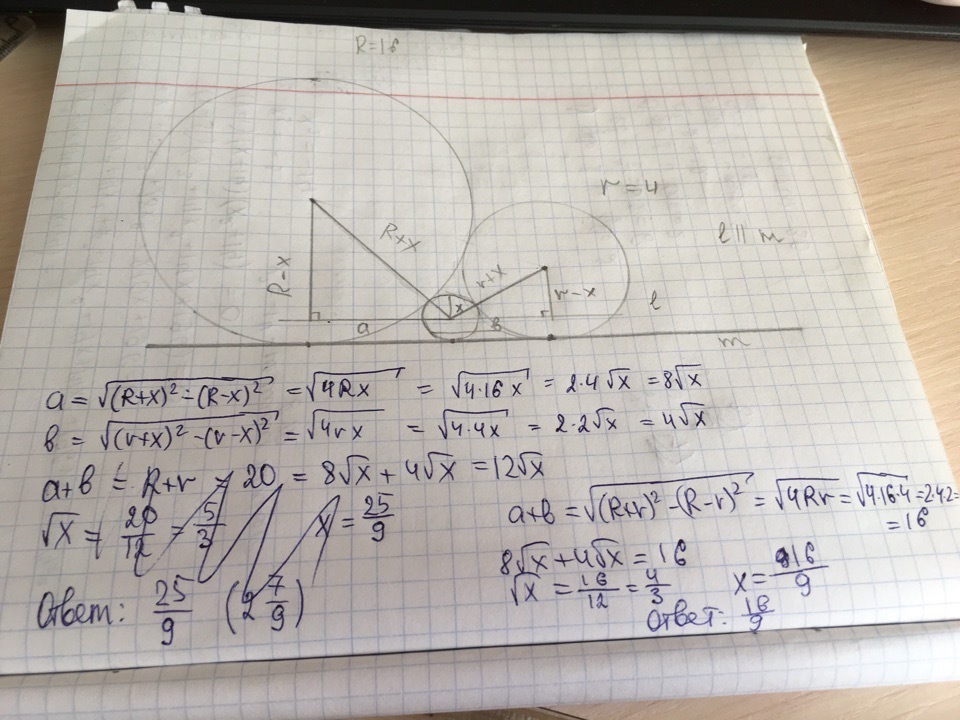 R=16
r = 4
R+x
l || m
r+x
R-x
r-x
x
l
a
в
m
a = √((R+x)² - (R-x)²) = √(4Rx) = √(4·16x) = 2·4√x = 8√x
в = √((r+x)² - (r-x)²) = √(4rx) = √(4·4x) = 2·2√x = 4√x
a+в = R+r = 20 = 8√x + 4√x = 12√x
√x = 20/12 = 5/3 x = 25/9
Ответ: 25/9 (2 7/9)
a+в = √((R+r)² - (R-r)²) = √(4Rr) = √(4·16·4) = 2·4·2 =
= 16
8√x + 4√x = 16
√x = 16/12 = 4/3 x = 16/9
Ответ: 16/9